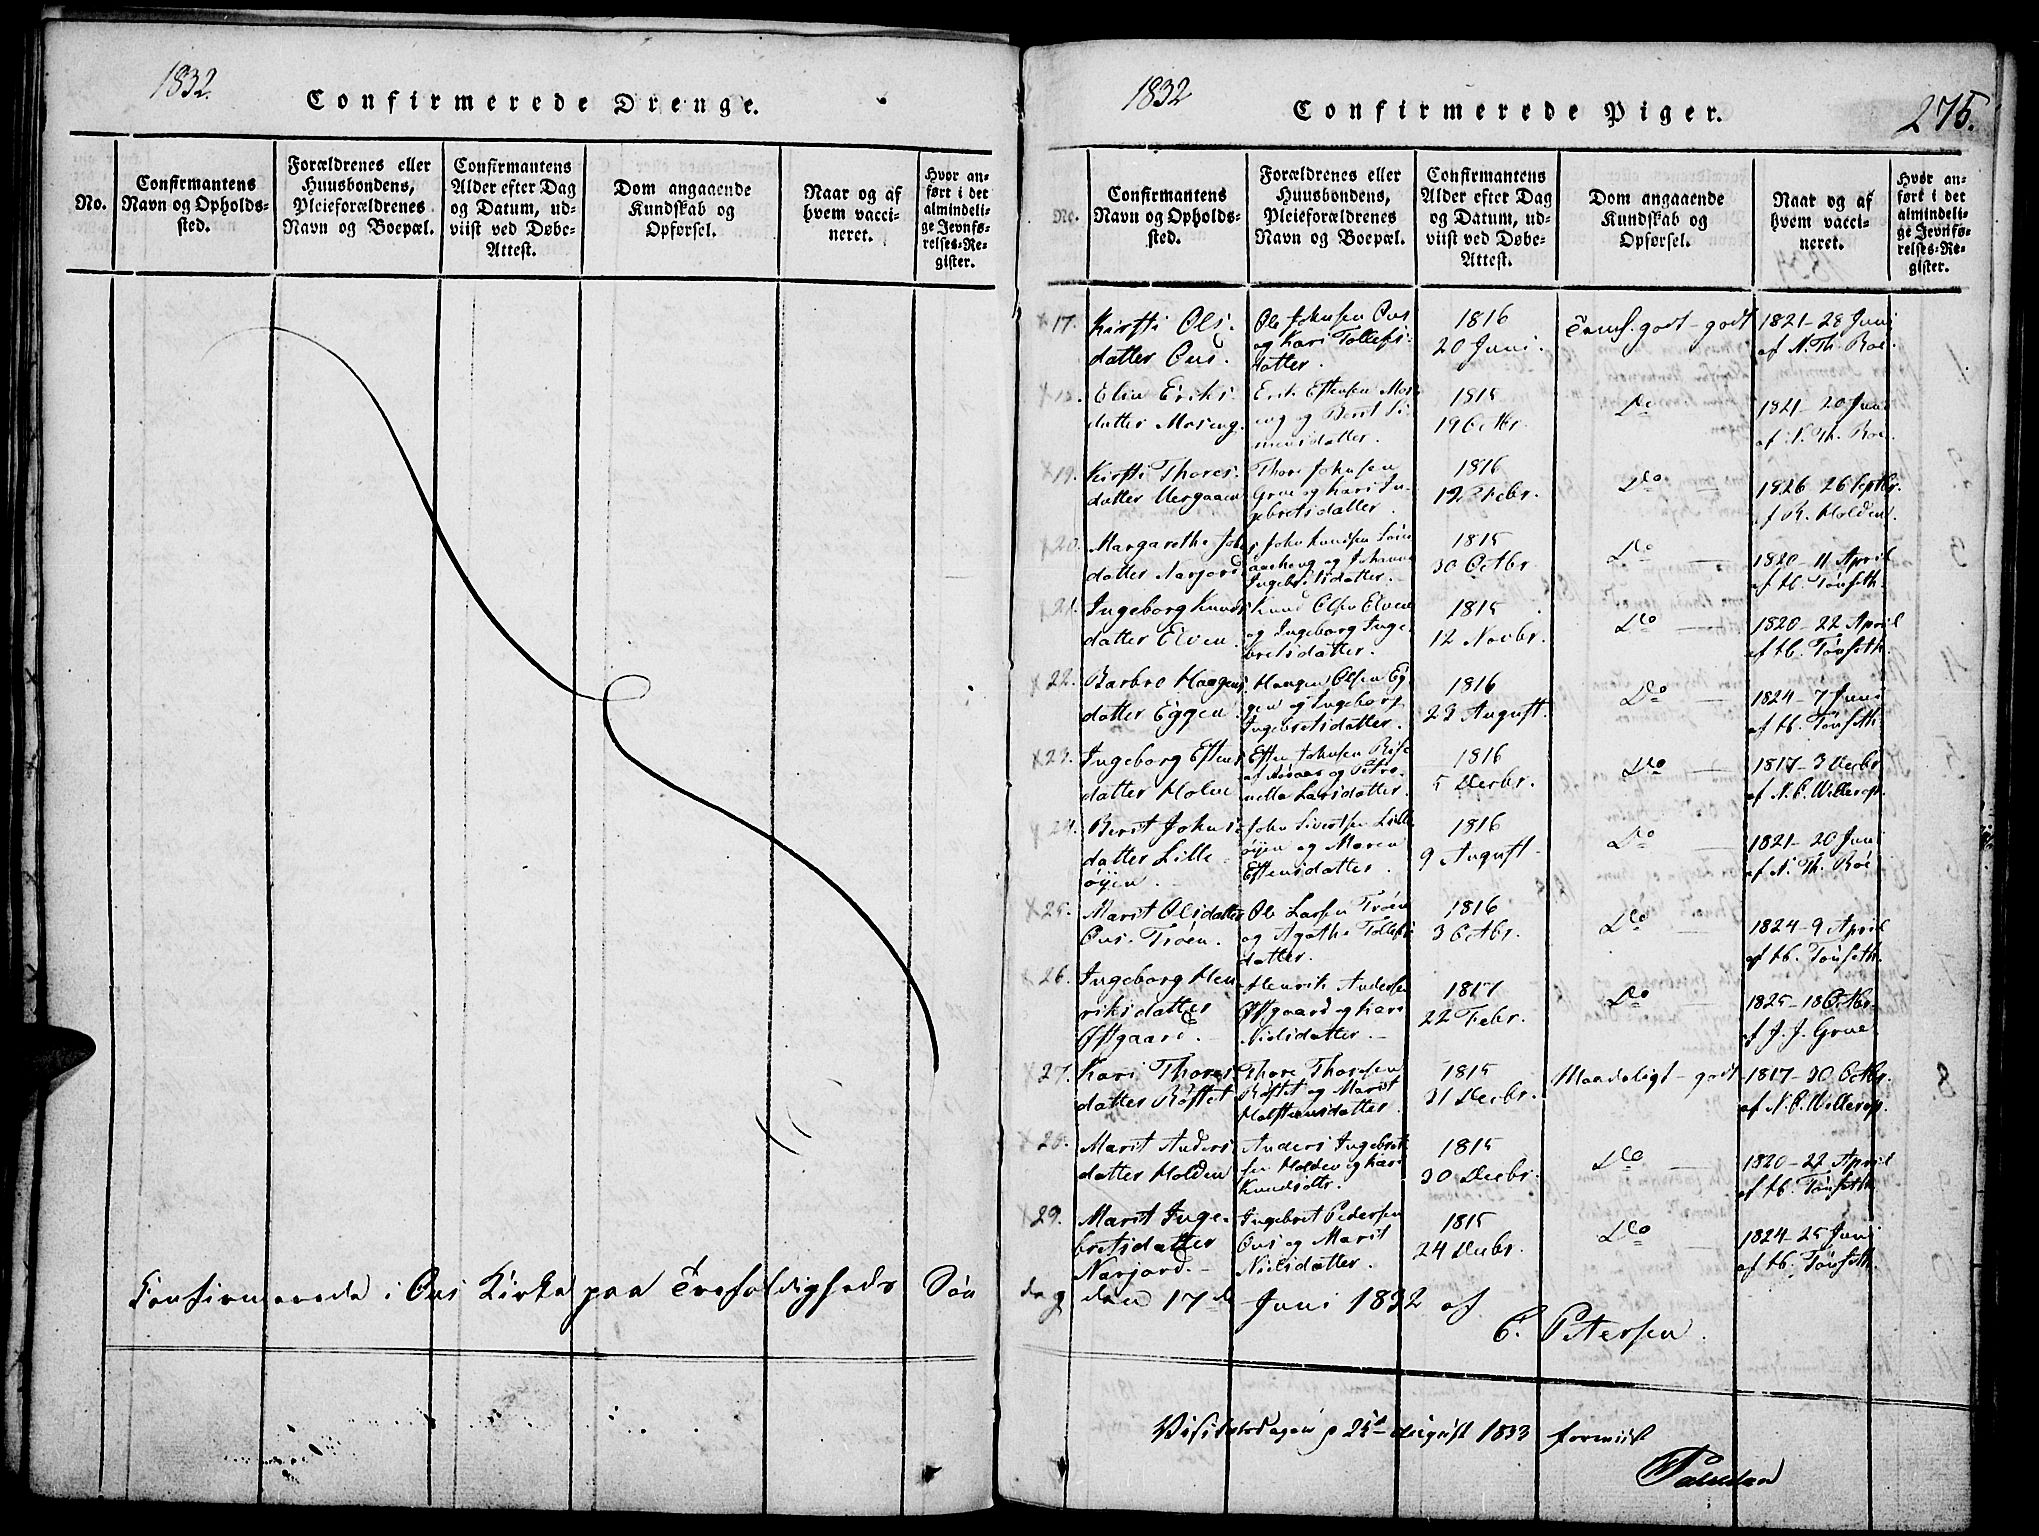 1832.
Confirmerede Drenge.
No.
Confirmantens
Navn og Opholds-
sted.
Forældrenes eller
Huusbondens,
Pleieforældrenes
Navn og Boepæl.
Confirmantens
Alder efter Dag
og Datum, ud-
viist ved Døbe-
Attest.
Dom angaaende
Kundskab og
Opførsel.
Naar og af
hvem vacci-
neret.
Hvor an-
ført i det
almindeli-
ge Jevnfø-
relses-Re-
gister.
Confirmerede i Ous Kirke paa Trefoldigheds Søn
1832
Confirmerede Piger.
275.
No.
Confirmantens
Navn og Opholds-
sted.
Forældrenes eller
Huusbondens,
Pleieforældrenes
Navn og Boepæl.
Confirmantens
Alder efter Dag
og Datum, ud-
viist ved Døbe-
Attest.
Dom angaaende
Kundskab og
Opførsel.
Naar og af
hvem vacci-
neret.
Hvor an-
ført i det
almindeli-
ge Jevnfø-
relses-Re-
gister.
17.
Kirsti Ols-
datter Ous.
Ole Johnsen Ous
og Kari Tollefs-
datter.
1816
20 Juni.
Teml. godt - godt
1821 - 28 Juni
af N. Th. Roe.
18.
Elin Eriks-
datter Moseng.
Erik Estensen Mos-
eng og Berit Si-
mensdatter.
1815
19 Octbr.
Do
1821 - 20 Juni
af N. Th. Roe.
19.
Kirsti Thores-
datter Vergaaen
Thore Johnsen
Grue og Kari In-
gebretsdatter.
1816
12 Febr.
Do
1826 - 26 Septbr.
af K. Holden.
20.
Margarethe Johns
datter Narjord
John Knudsen
og Johanne
Ingebretsdatter.
1815
30 Octbr
Do
1820 - 11 April
af H. Tønseth.
21.
Ingeborg Knuds
datter Elven.
Knud Olsen Elven
og Ingeborg Inge-
bretsdatter.
1815
12 Novbr.
Do
1820 - 22 April
af H. Tønseth.
22.
Barbro Haagens
datter Eggen.
Haagen Olsen Eg-
gen og Ingeborg
Ingebretsdatter.
1816
23 August.
Do
1824 - 7 Juni
af H. Tønseth.
23.
Ingeborg Estens
datter Holm
Esten Johnsen
og Petro-
nelle Larsdatter.
1816
5 Decbr.
Do
1817 - 3 Decbr
af N. C. Willerup.
24.
Berit Johns-
datter Lille-
øyen.
John Sivertsen Lille
øyen og Maren
Estensdatter.
1816
9 August
Do
1821 - 20 Juni
af N. Th. Roe
25.
Marit Olsdatter
Ous-Trøen.
Ole Larsen Trøen
og Agathe Tollefs
datter.
1816
3 Octbr.
Do
1824 - 9 April
af H. Tønseth.
26.
Ingeborg Hen-
riksdatter
Østgaard.
Henrik Andersen
Østgaard og Kari
Nielsdatter.
1817
22 Febr.
Do
1825 - 18 Octbr.
af J. J. Grue.
27.
Kari Thores-
datter Røstet
Thore Thoresen
Røstet og Marit
Halstensdatter.
1815
31 Decbr.
Maadeligt - godt
1817 - 30 Octbr.
af N. C. Willerup.
28.
Marit Anders-
datter Holden
Anders Ingebret-
sen Holden og Kari
Knudsdtr.
1815
30 Decbr.
Do
1820 - 22 April
af H. Tønseth
29.
Marit Inge-
bretsdatter
Narjord.
Ingebret Pedersen
Ous og Marit
Nielsdatter.
1815
24 Decbr.
Do
1824 - 25 Juni
af H. Tønseth.
dag den 17de Juni 1832 af
C. Petersen.
25d August 1833 forevist